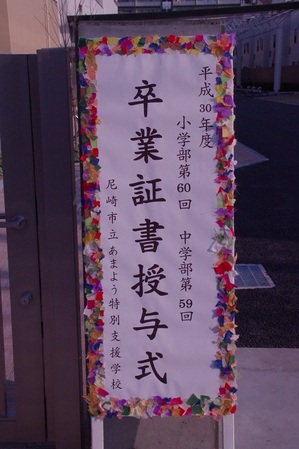 平成30年度
小学部第60回 中学部第59回
卒業証書授与式
尼崎市立あまよう特別支援学校